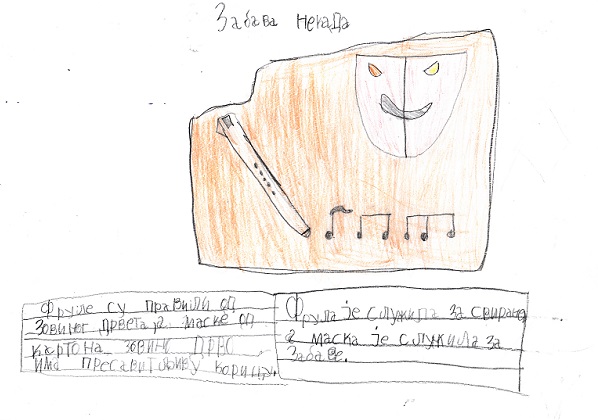 Забава некада
Фруле су правили од
зовиног дрвета, а маске од
картона. зовино дрво
има
Фрула је служила за свирање
а маска је служила за
забаве.